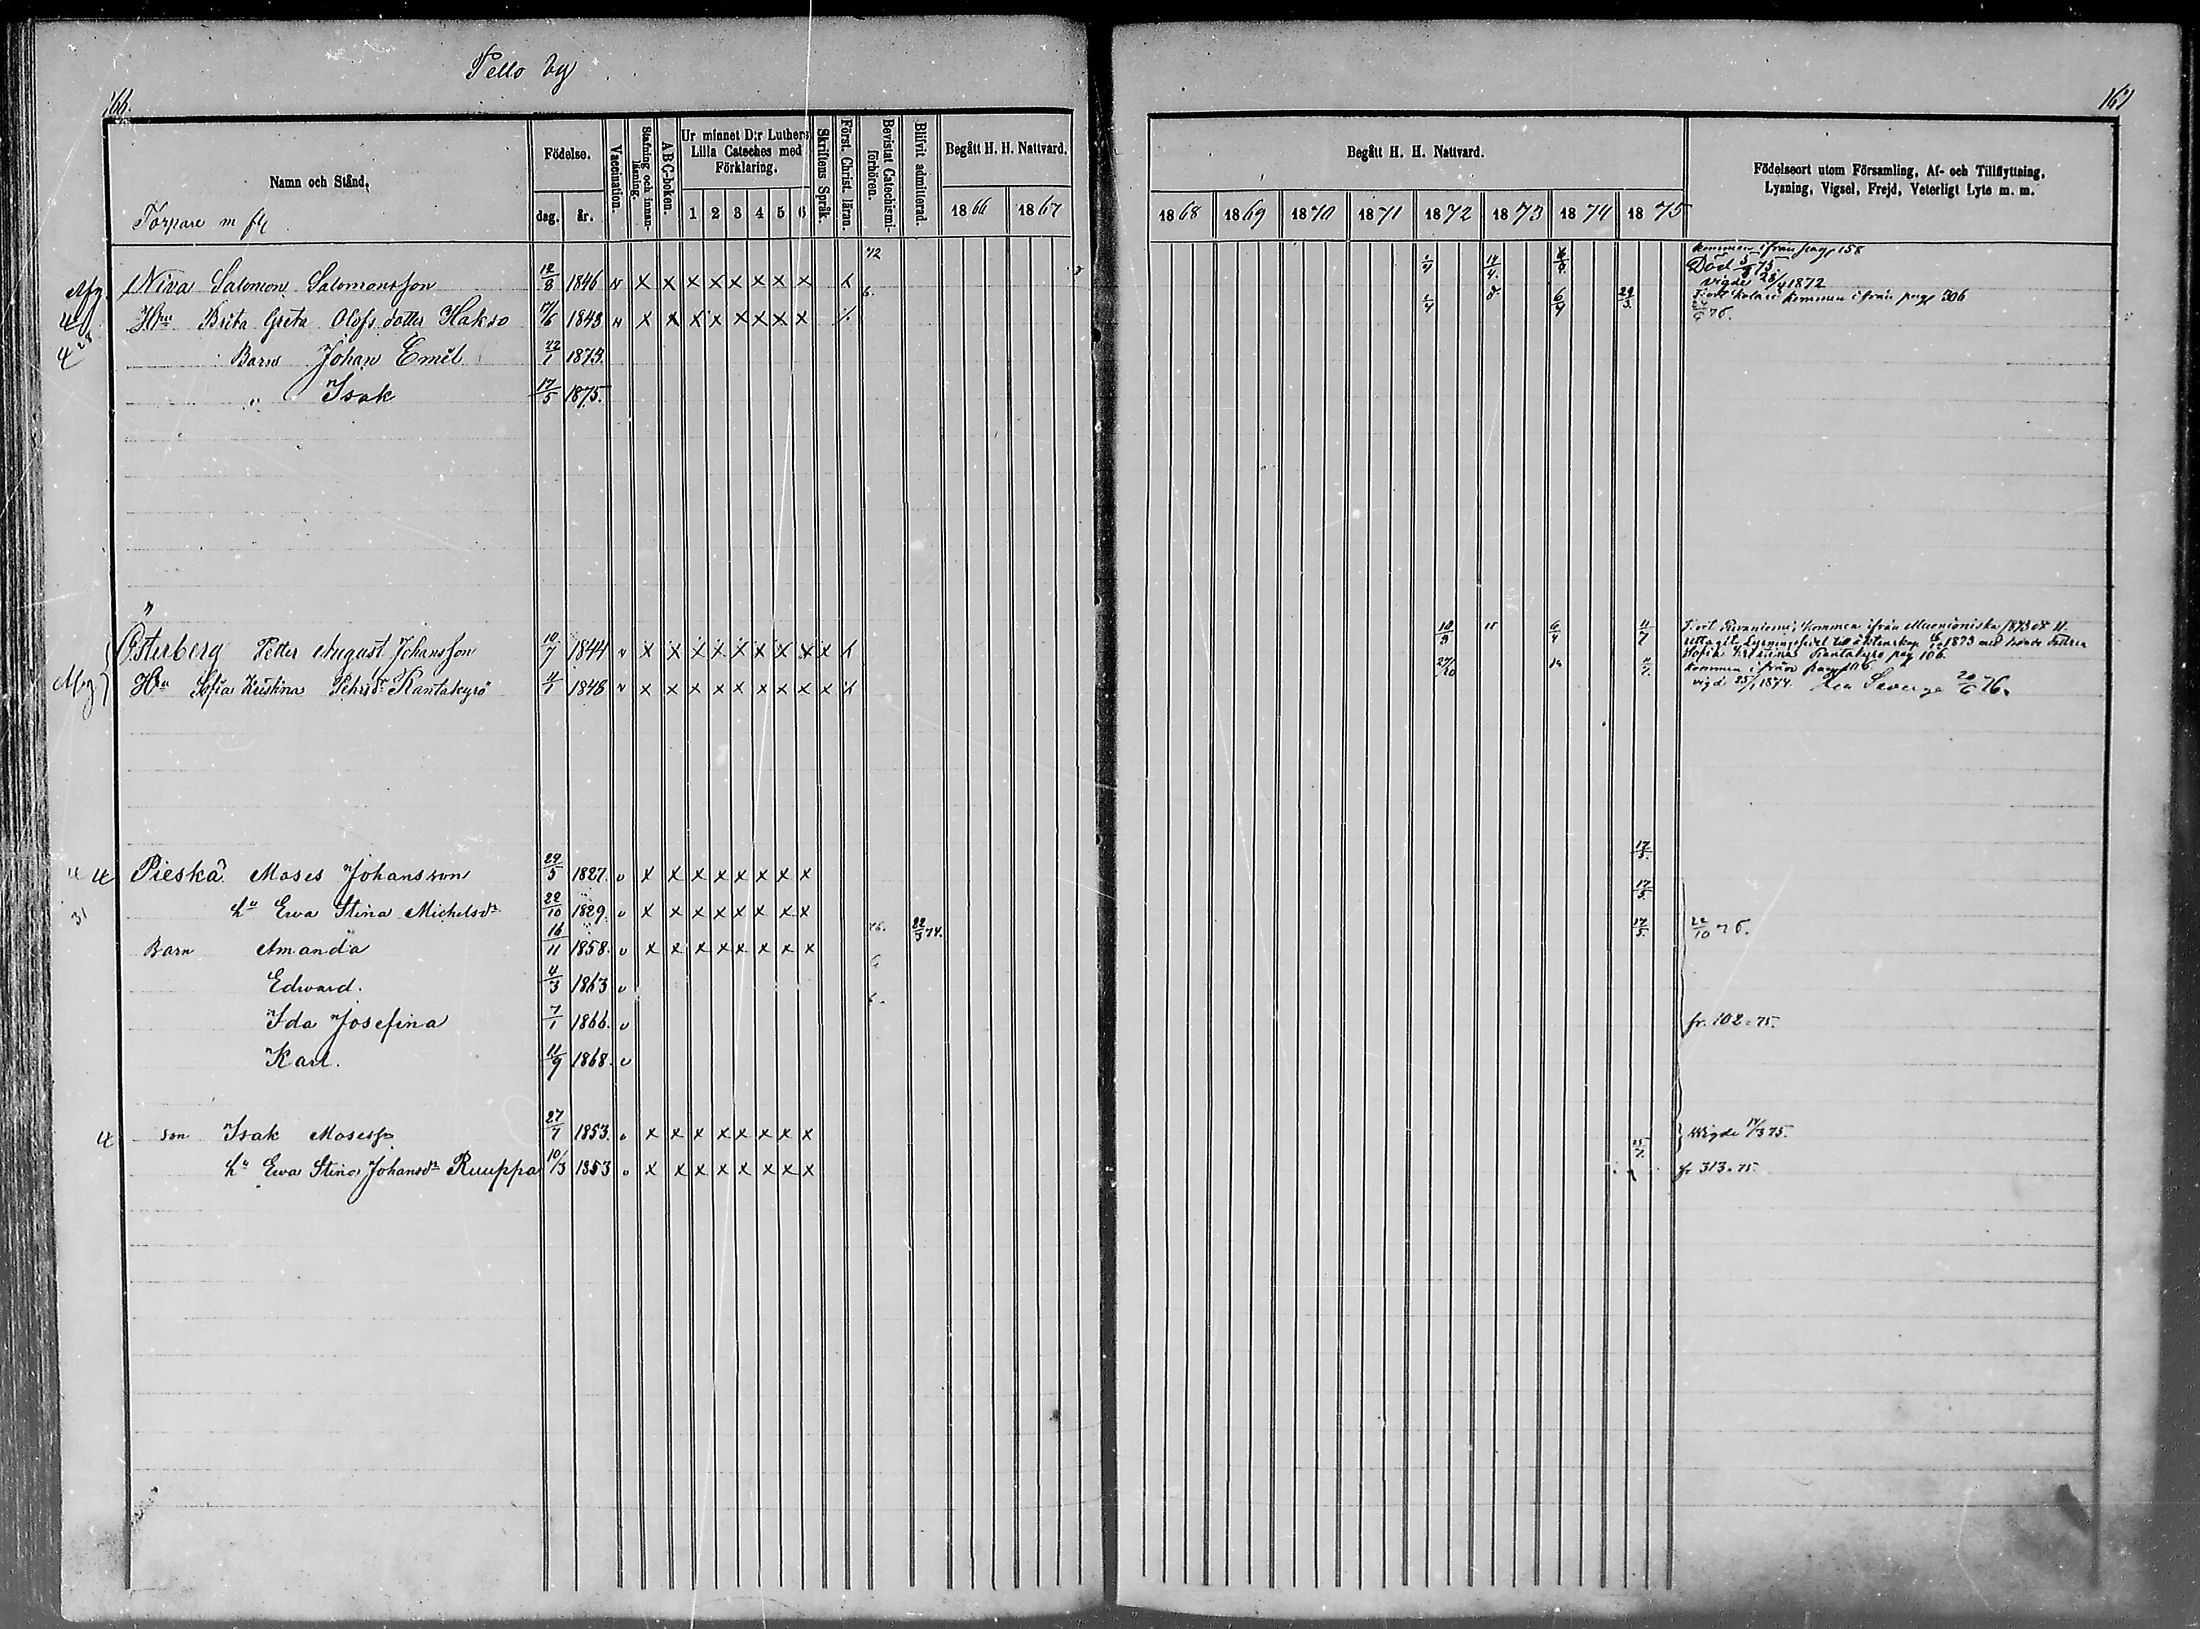 Pello by
166.
Namn och Stånd.
Torpare m fl
Födelse.
dag. år.
Vaccination.
Stafning och innanläsning.
ABC-boken.
Ur minnet D:r Luthers Lilla Cateches med Förklaring.
1 2 3 4 5 6
Skriftens Språk.
Först. Christ. läran.
Bevistat Catechismiförhören.
Blifvit admitterad.
Begått H. H. Nattvard.
1866 1867
Niva Salomon Salomonsson 12/8 1846 x x x x x x x x
Hru Brita Greta Olofs dotter Hakso 17/6 1843 x x x x x x x x
Barn Johan Emil 22/1 1873.
" Isak 17/5 1875.
Österberg Petter August Johansson 10/7 1844 x x x x x x x x x
Hru Sofia Kristina Pehrsdr Kantakyrö 4/1 1848 x x x x x x x x x
Pieskä Moses Johansson 29/5 1827. v x x x x x x x x
hu Ewa Stina Michelsdr 22/10 1829. v x x x x x x x x
Barn Amanda 16/11 1858. v x x x x x x x x 22/3 74.
Edward. 4/3 1863 v
Ida Josefina 7/1 1866. v
Karl. 11/9 1868. v
son Isak Mosess 27/7 1853. v x x x x x x x x
hu Ewa Stina Johansdr Ruuppa 10/3 1853 v x x x x x x x x
167
Begått H. H. Nattvard.
1868 1869 1870 1871 1872 1873 1874 1875
Födelseort utom Församling, Af- och Tillflyttning, Lysning, Vigsel, Frejd, Veterligt Lyte m. m.
kommen ifrån pag 158
Död 5/8 75.
vigde 28/4 1872
F:ort Kolari kommen ifrån pag 306
kommen ifrån Muonioniska 1873
Sofia Kristina Kantakyrö pag 106.
kommen ifrån pag 106.
vigde 25/1 1874. 20/6 76.
17/5.
17/5.
17/5. 22/10 76.
fr. 102 - 75.
Wigde 14/3 75.
fr 313 - 75.